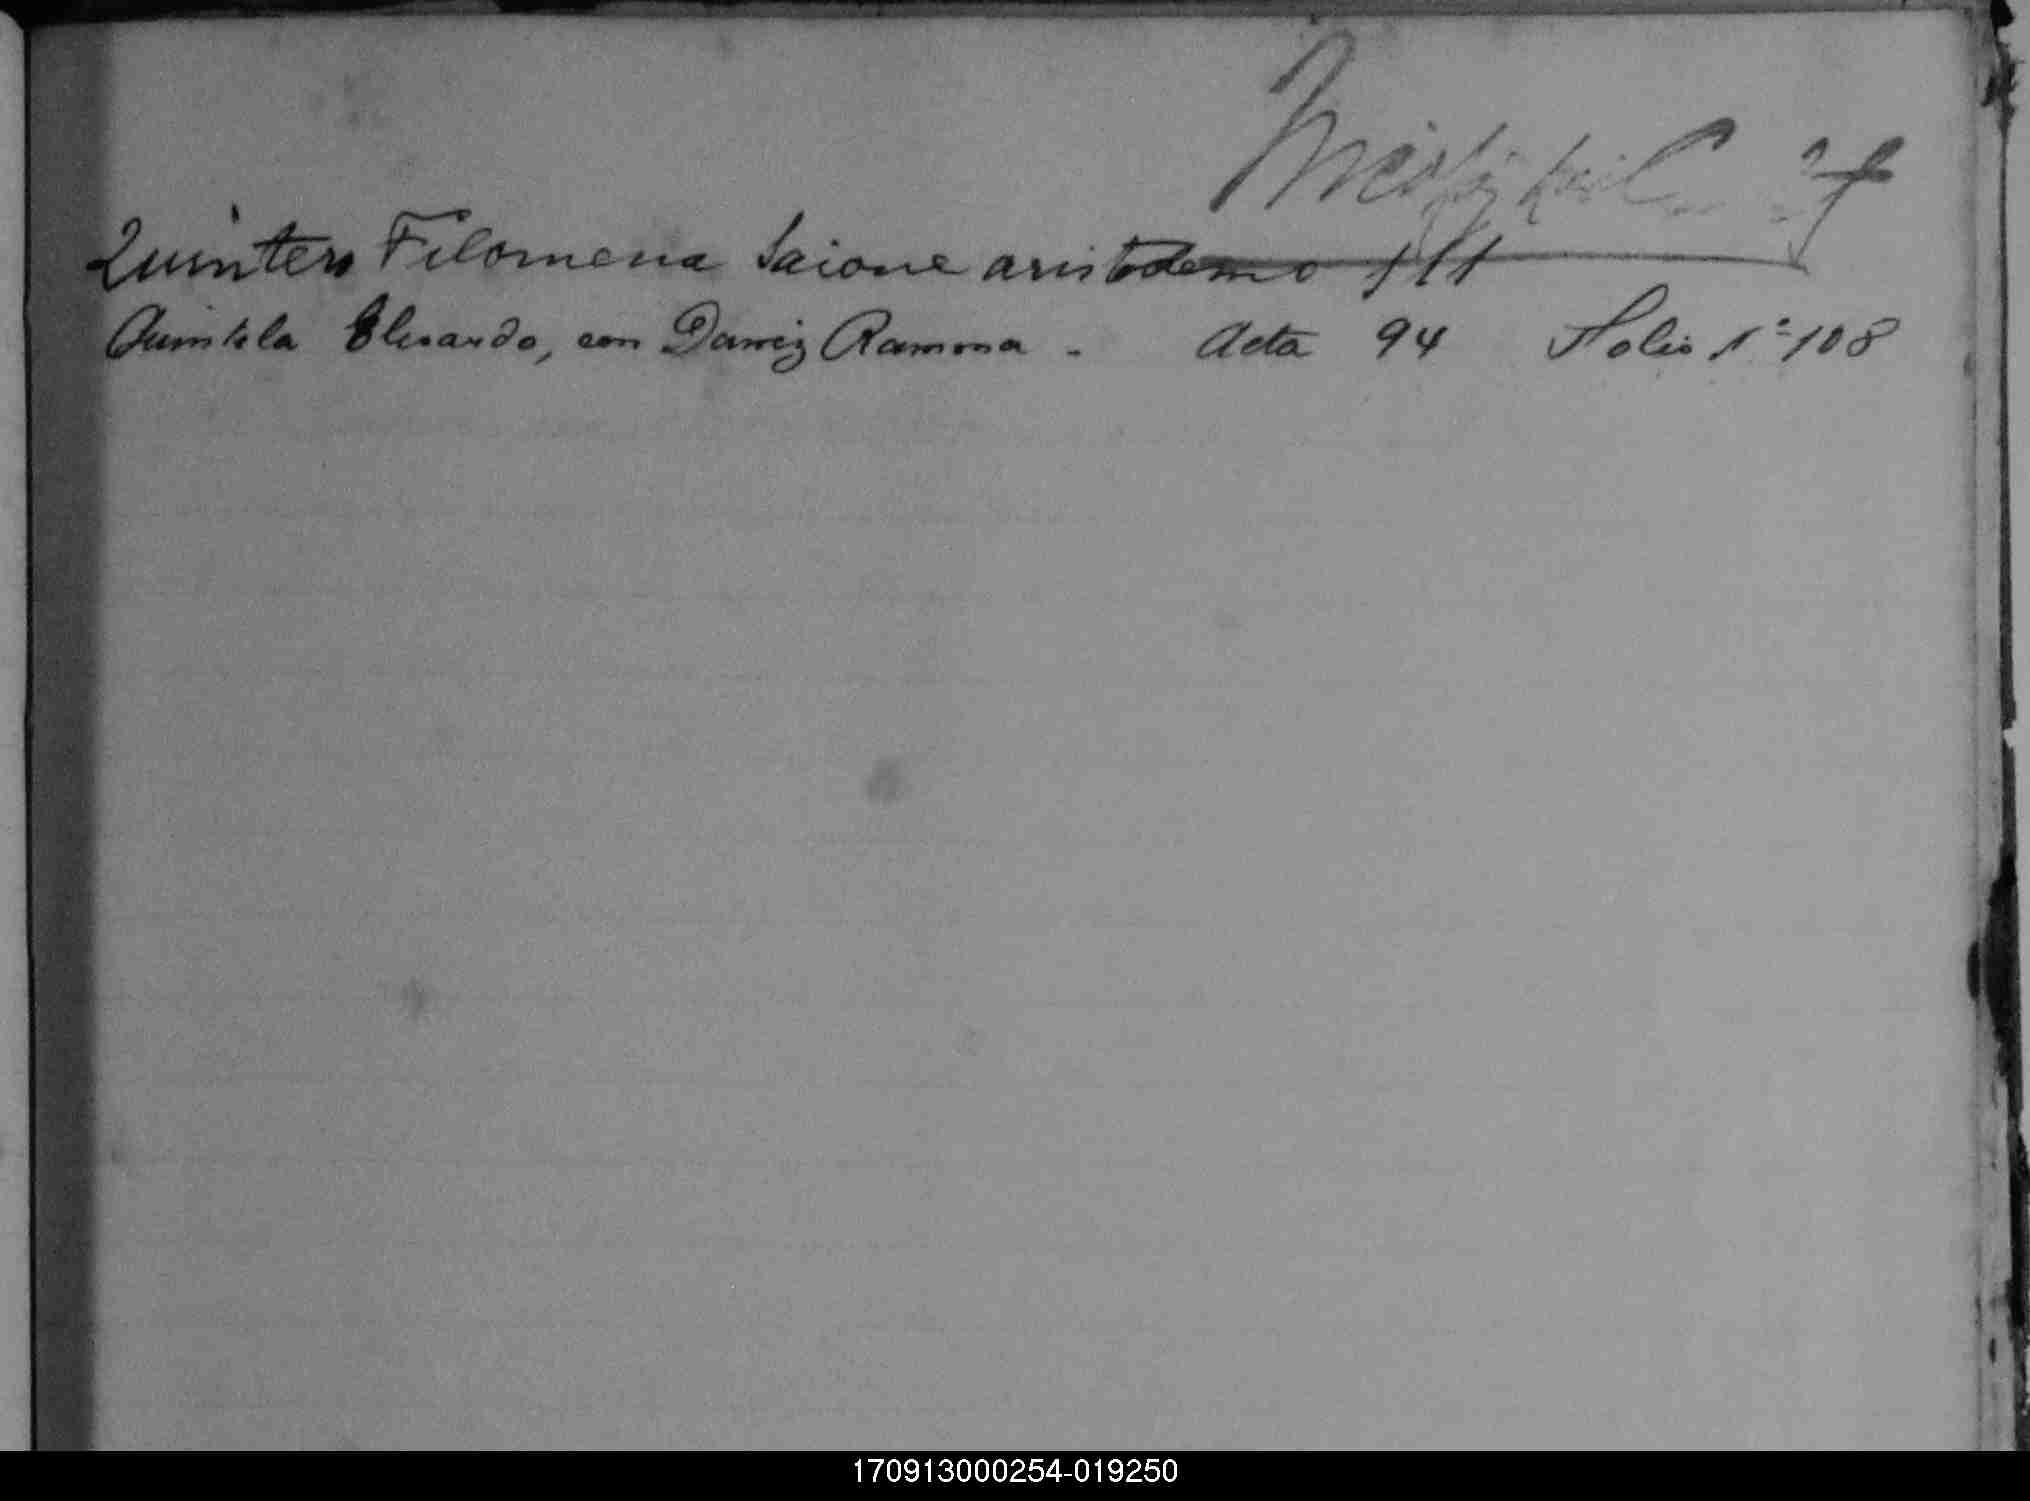 Quintero Filomena Saione aristodemo 111
Quintela Elisardo, con Ramona - Acta 94 Folio 1º 108
170913000254-019250